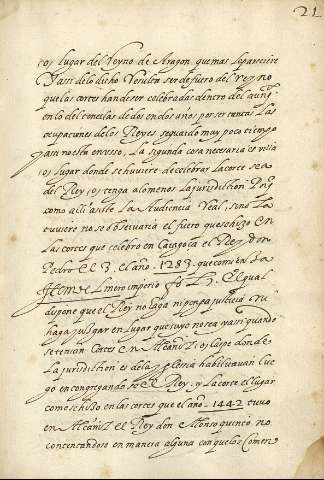 21
o, lugar del Reyno de Aragon, que mas le pareciere
Y assi de lo dicho resulta ser de fuero del rey, no
que las cortes han de ser celebradas dentro del aqui
en lo del tenellas de dos en dos años por ser tantas Las
ocupaciones de los Reyes se guardo muy poco tiempo
La segunda cosa necesaria es villa
o, lugar donde se huuiere de celebrar la corte sea
del Rey, o, tenga alomenos La jurisdiction
como alli ante La Audiencia Real, sino La
tuuiere no se obseruaria el fuero que se hizo en
las cortes que celebro en Caragoça el Rey don
Pedro el 3. el año. 1283. que comiença
Item el mero imperio El qual
dispone que el Rey no haga ni ponga justicia ni
haga juzgar en lugar que suyo no sea y assi quando
se tenian Cortes en Alcañiz, o, Caspe donde
La jurisdiction es de la yglesia habilitauan lue
go en congregandose el Rey, y La corte el lugar
como se hizo en las cortes que el año. 1442 tuuo
en Alcañiz el Rey don Alonso quinto no
contentandose en manera alguna con que los Comen